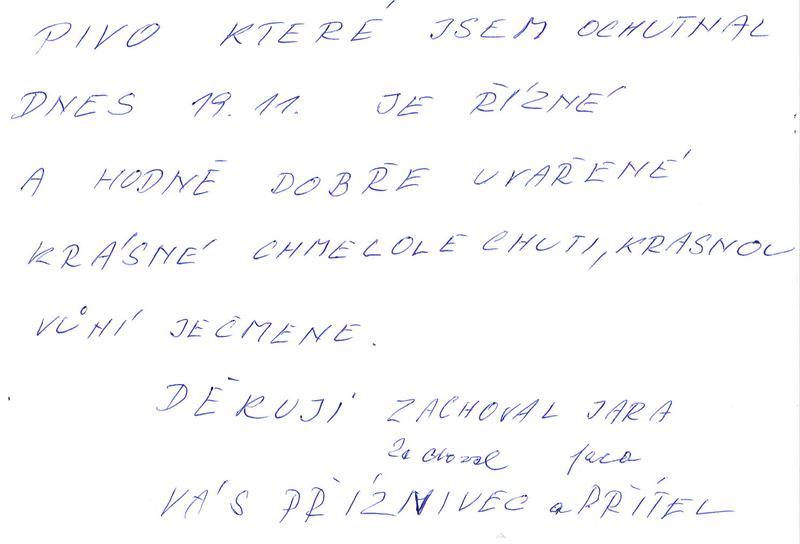 PIVO KTERÉ JSEM OCHUTNAL
DNES 19.11. JE ŘÍZNÉ
A HODNĚ DOBŘE UVAŘENÉ
KRÁSNÉ CHMELOLE CHUTI, KRASNOU
VŮNÍ JEČMENE.
DĚKUJI ZACHOVAL JARA
Zachoval Jara
VÁS PŘÍZNIVEC a PŘÍTEL